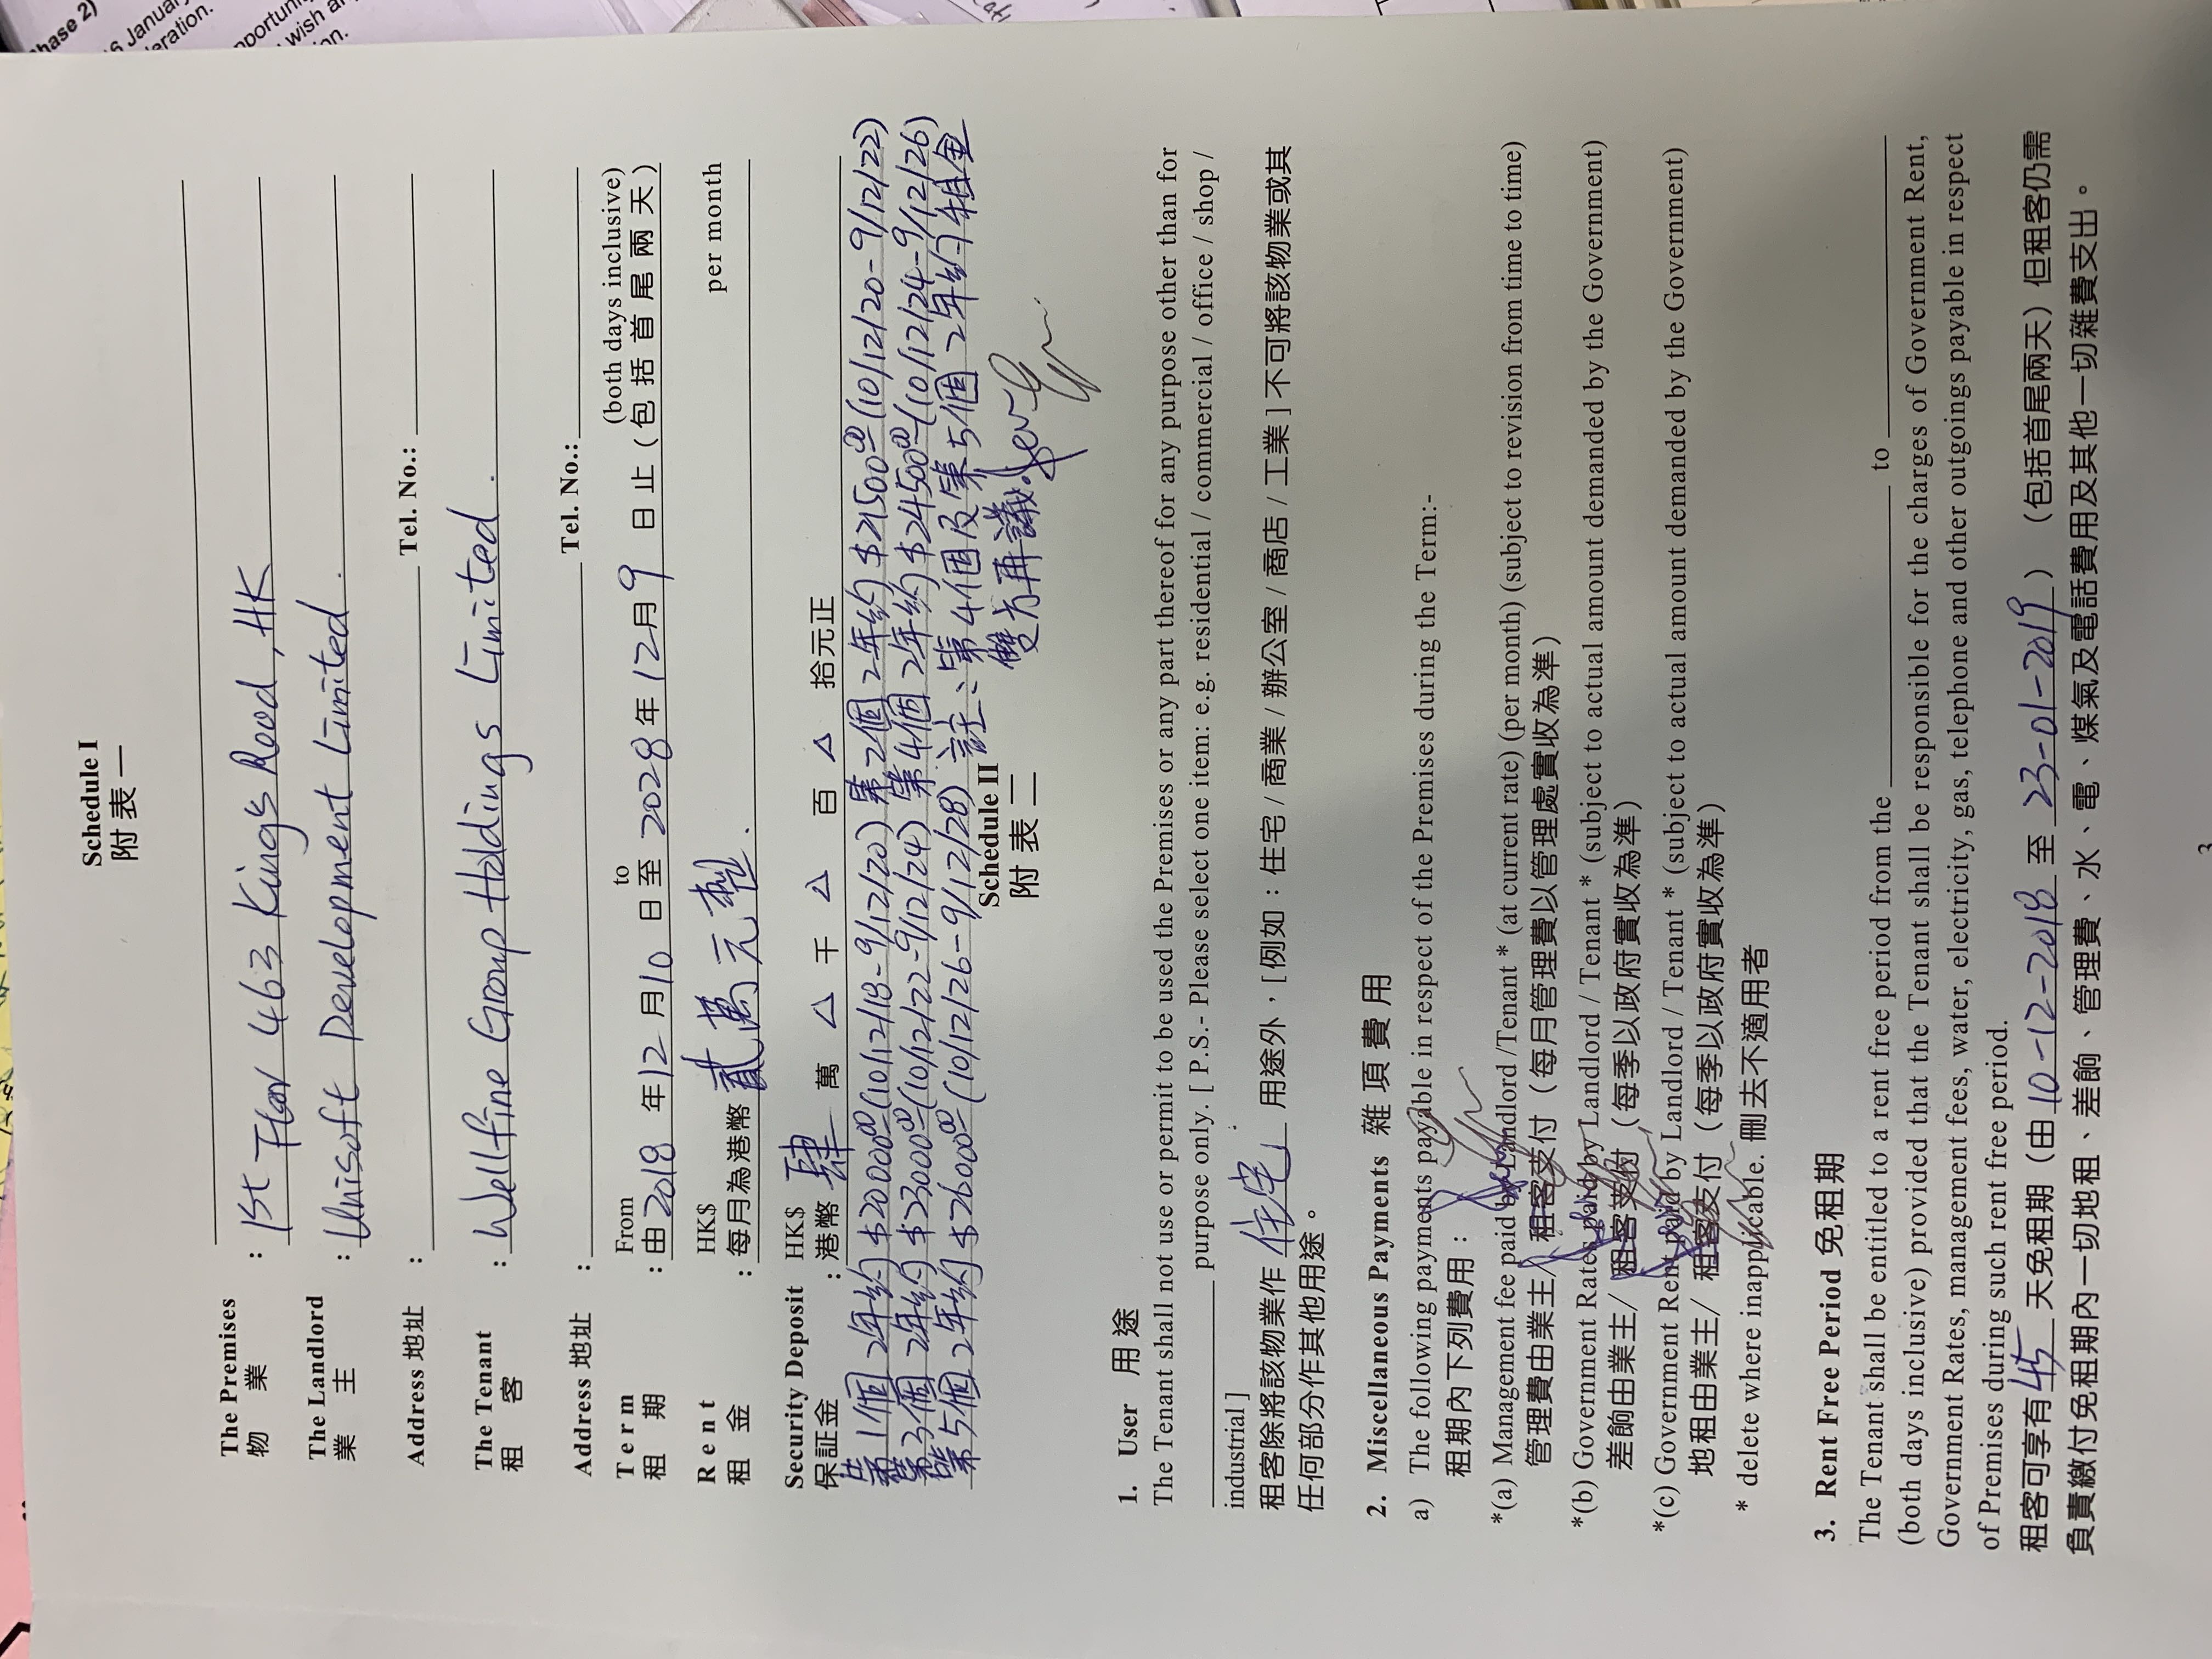 Schedule I
附 表 一
The Premises
物 業 : 1st Floor 463 King's Road, HK
The Landlord
業 主 : Unisoft Development Limited.
Address 地址 : Tel. No.:
The Tenant
租 客 : Wellfine Group Holdings Limited.
Address 地址 : Tel. No.:
Term From to (both days inclusive)
租 期 : 由 2018 年 12 月 10 日 至 2028 年 12 月 9 日 止 ( 包 括 首 尾 兩 天 )
Rent HK$ per month
租 金 : 每月為港幣 貳萬元整.
Security Deposit HK$
保証金 : 港幣 肆 萬 △ 千 △ 百 △ 拾元正
第1個2年約 $20000.00 (10/12/18-9/12/20) 第2個2年約 $21500.00 (10/12/20-9/12/22)
第3個2年約 $23000.00 (10/12/22-9/12/24) 第4個2年約 $24500.00 (10/12/24-9/12/26)
第5個2年約 $26000.00 (10/12/26-9/12/28) 註: 第4個及第5個2年約租金
雙方再議.
Schedule II
附 表 二
1. User 用 途
The Tenant shall not use or permit to be used the Premises or any part thereof for any purpose other than for
purpose only. [ P.S.- Please select one item: e.g. residential / commercial / office / shop /
industrial ]
租客除將該物業作 住宅 用途外，[例如：住宅 / 商業 / 辦公室 / 商店 / 工業 ] 不可將該物業或其
任何部分作其他用途。
2. Miscellaneous Payments 雜 項 費 用
a) The following payments payable in respect of the Premises during the Term:-
租期內下列費用：
*(a) Management fee paid by Landlord /Tenant * (at current rate) (per month) (subject to revision from time to time)
管理費由業主/ 租客支付（每月管理費以管理處實收為準）
*(b) Government Rates paid by Landlord / Tenant * (subject to actual amount demanded by the Government)
差餉由業主/ 租客支付（每季以政府實收為準）
*(c) Government Rent paid by Landlord / Tenant * (subject to actual amount demanded by the Government)
地租由業主/ 租客支付（每季以政府實收為準）
* delete where inapplicable. 刪去不適用者
3. Rent Free Period 免租期
The Tenant shall be entitled to a rent free period from the to
(both days inclusive) provided that the Tenant shall be responsible for the charges of Government Rent,
Government Rates, management fees, water, electricity, gas, telephone and other outgoings payable in respect
of Premises during such rent free period.
租客可享有 45 天免租期（由 10-12-2018 至 23-01-2019）（包括首尾兩天）但租客仍需
負責繳付免租期內一切地租、差餉、管理費、水、電、煤氣及電話費用及其他一切雜費支出。
3